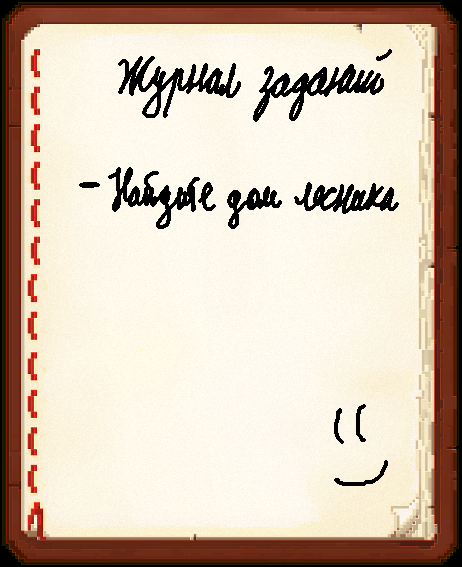 Журнал заданий
- Найдите дом лесника